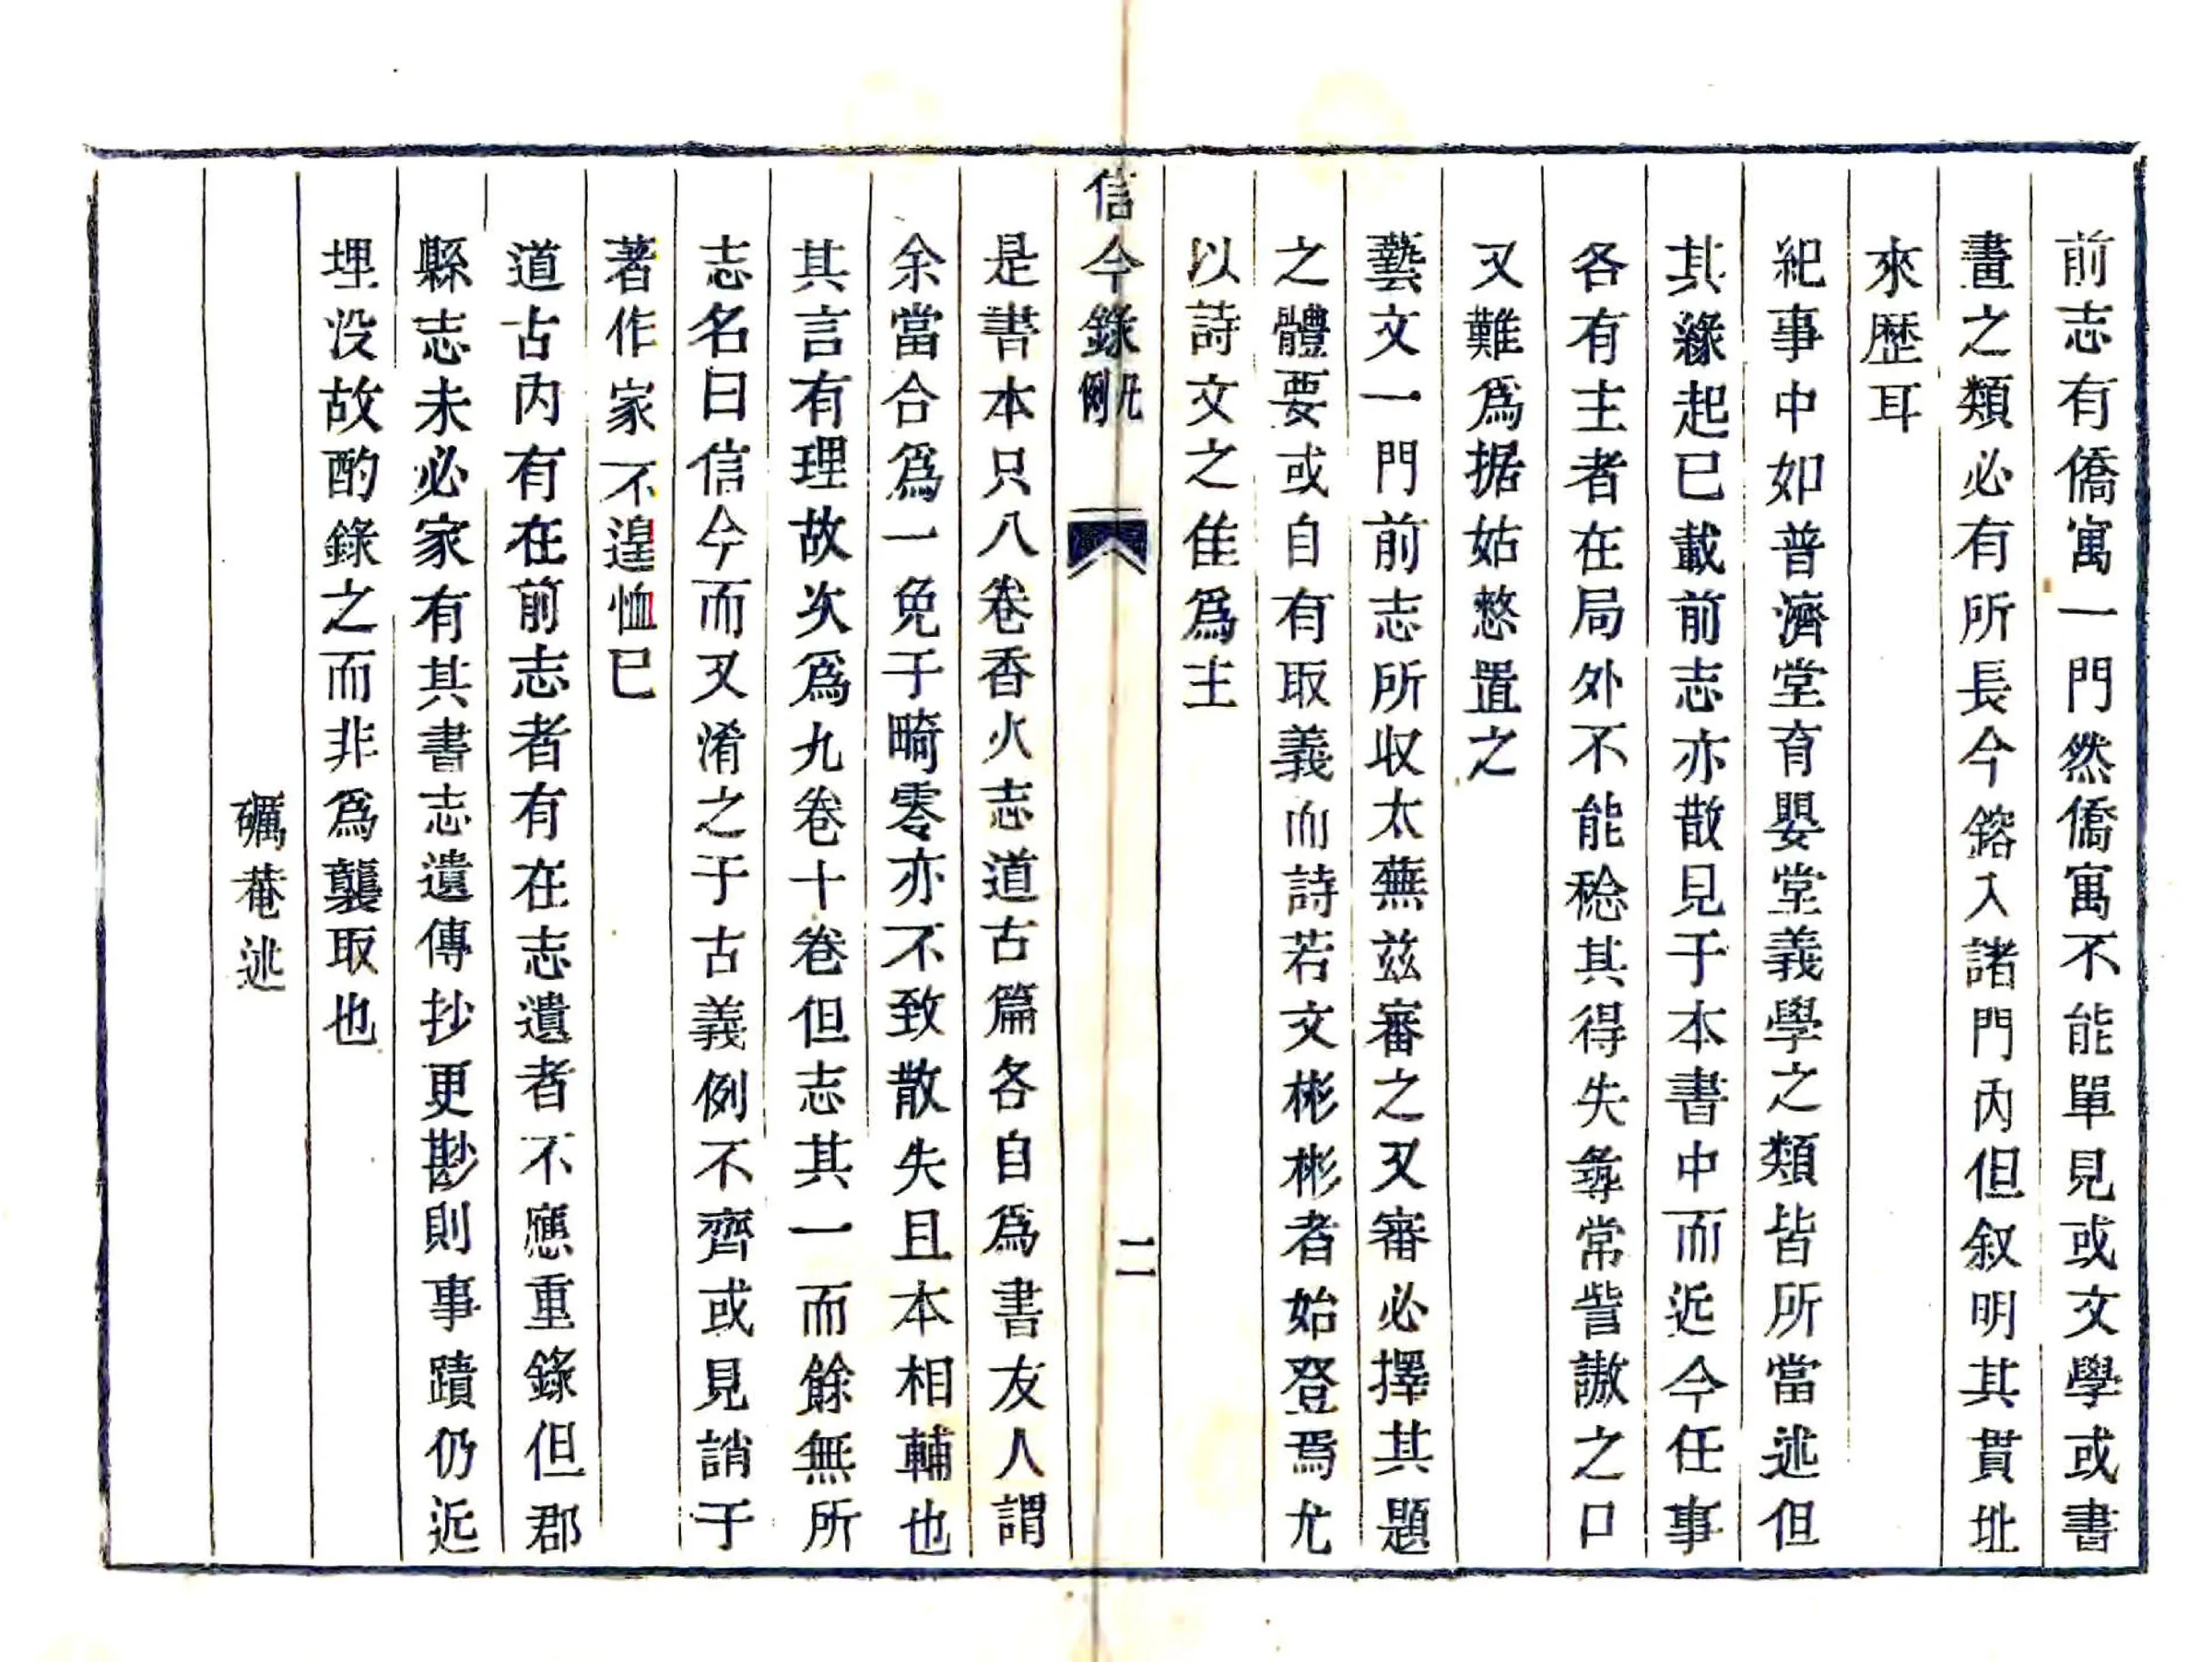 前志有僑寓一門然僑寓不能單見或文學或書
畫之類必有所長今鎔入諸門內但叙明其貫址
來歴耳
紀事中如普濟堂育嬰堂義學之類皆所當述但
其緣起已載前志亦散見于本書中而近今任事
各有主者在局外不能稔其得失彝常訾謷之口
又難爲据姑慗置之
藝文一門前志所収太蕪兹審之又審必擇其題
之體要或自有取義而詩若文彬彬者始登焉尤
以詩文之佳爲主
信今錄凡例
二
是書本只八卷香火志道古篇各自爲書友人謂
余當合爲一免于畸零亦不致散失且本相輔也
其言有理故次爲九卷十卷但志其一而餘無所
志名曰信今而又淆之于古義例不齊或見誚于
著作家不遑恤已
道古內有在前志者有在志遺者不應重錄但郡
縣志未必家有其書志遺傳抄更尠則事蹟仍近
埋没故酌錄之而非爲襲取也
礪菴述